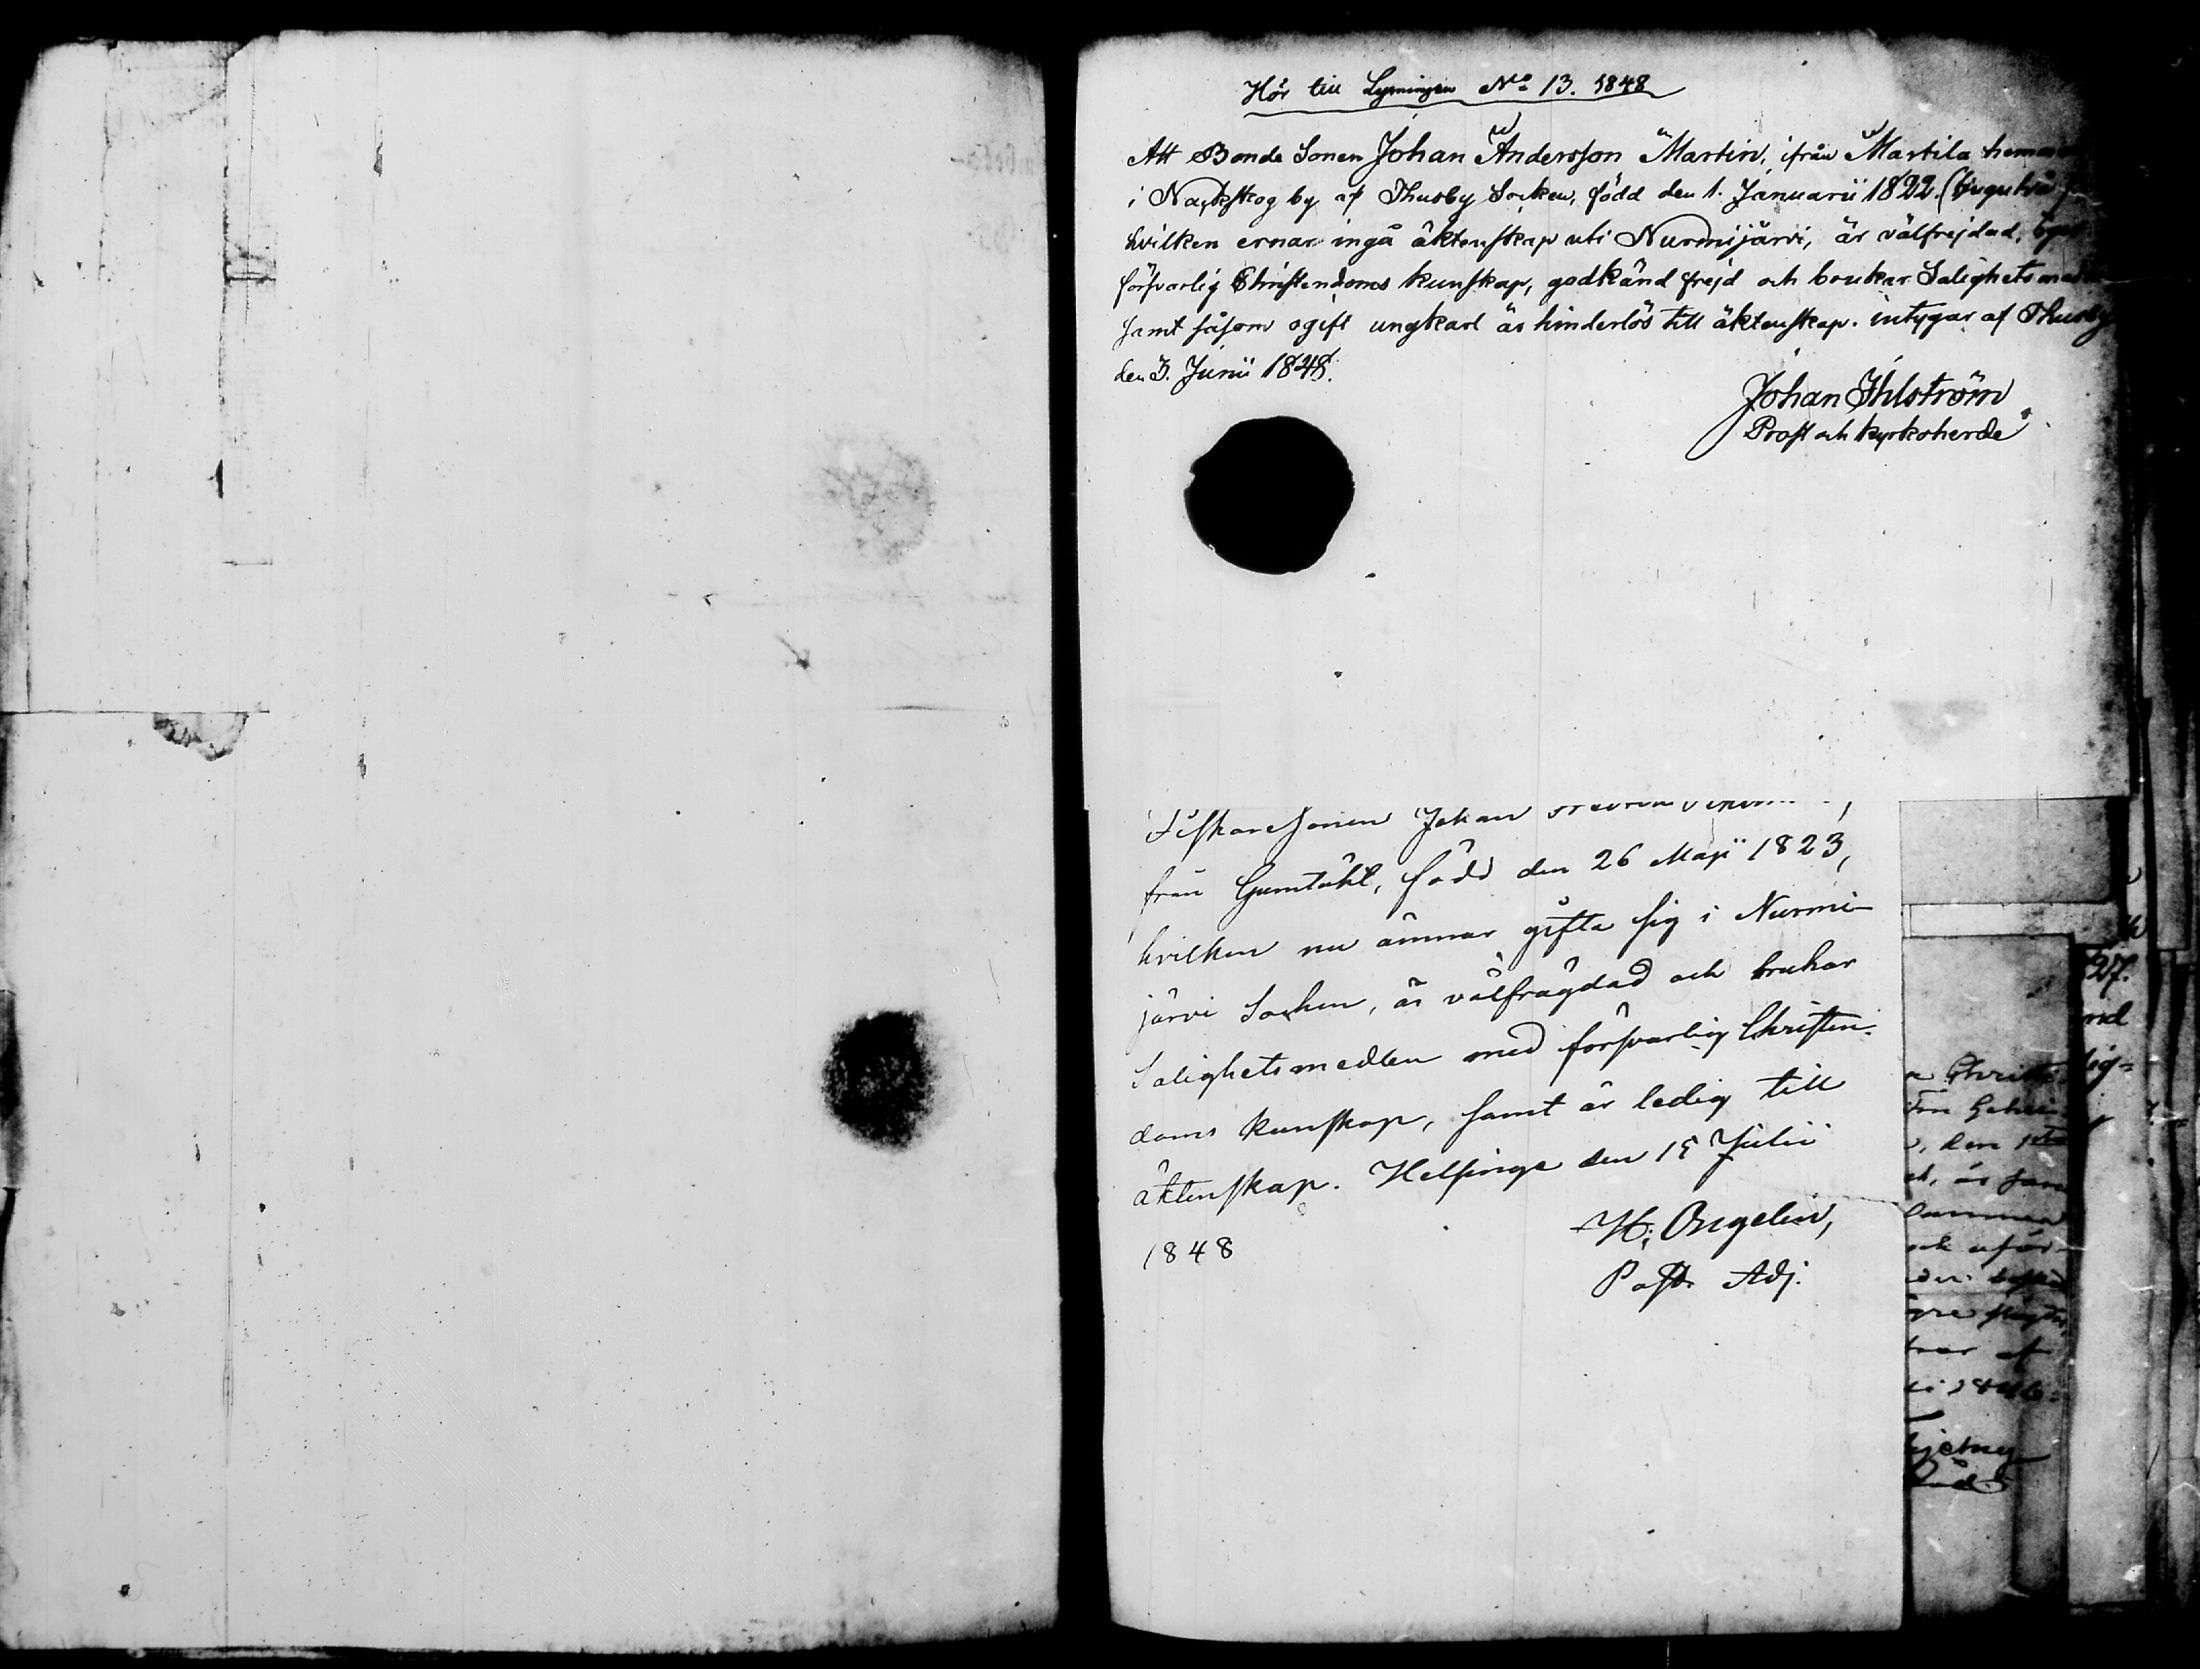 Hör till Lysningen No 13. 1848
Att Bonde Sonen Johan Andersson Martin, ifrån Martila
i Nackskog by af Thusby Socken, född den 1. Januarii 1822. (tjugutvå
hvilken ernar ingå äktenskap uti Nurmijärvi, är välfrejdad,
försvarlig Christendoms kunskap, godkänd frejd och brukar
samt såsom ogift ungkarl är hinderlös till äktenskap. intygar af Thusby
den 3. Junii 1848.
Johan Ihlström
Prost och Kyrkoherde
Fiskaresonen Johan
från Gumtäkt, född den 26 Maji 1823,
hvilken nu ämnar gifta sig i Nurmi-
järvi Socken, är välfrägdad och brukar
Salighetsmedlen med försvarlig Christen-
doms kunskap, samt är ledig till
äktenskap. Helsinge den 15 Julii
1848
H. Ongelin,
Past. Adj.
27.
nd
lig-